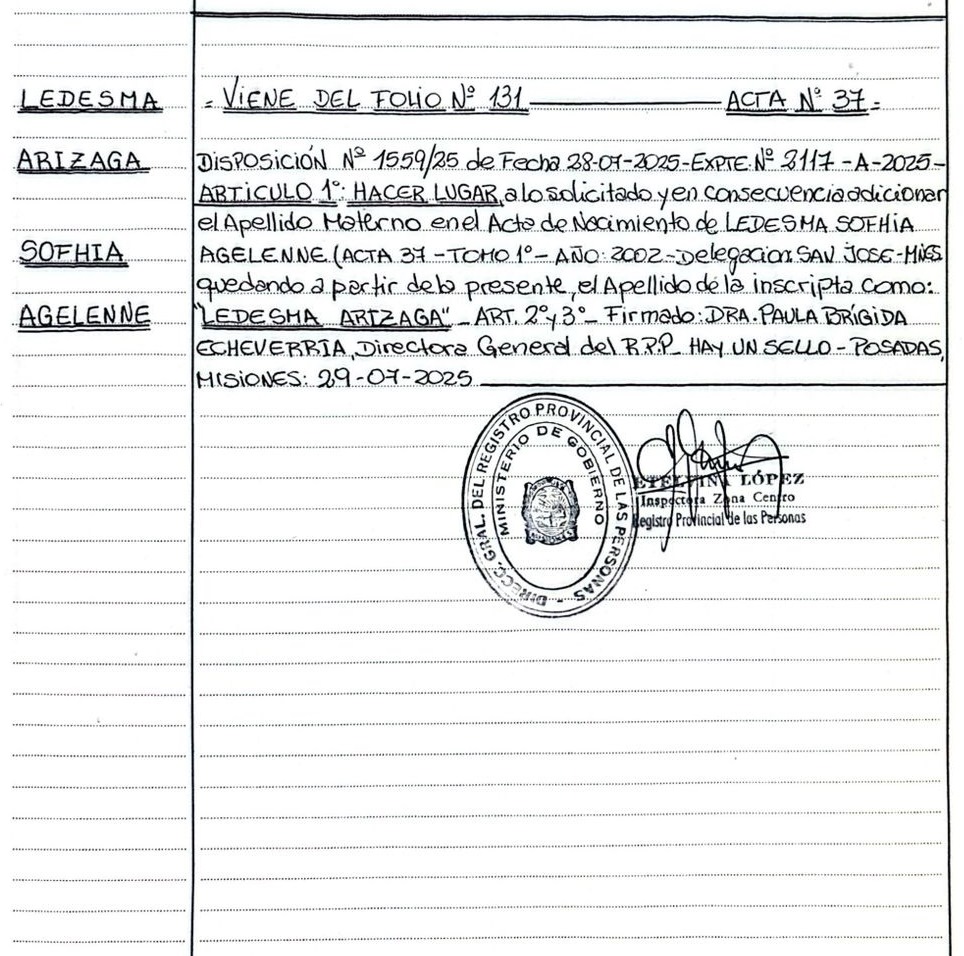 LEDESMA
= VIENE DEL FOLIO Nº 131 ACTA Nº 37=
ARIZAGA
DISPOSICIÓN Nº 1559/25 de Fecha 28-07-2025-EXPTE.Nº 3117-A-2025-
ARTICULO 1º: HACER LUGAR, a lo solicitado y en consecuencia adicionar
el Apellido Materno en el Acta de Nacimiento de LEDESMA SOFHIA
SOFHIA
AGELENNE (ACTA 37-TOMO 1º-AÑO: 2002-Delegacion: SAN JOSE-MNES
quedando a partir de la presente, el Apellido de la inscripta como:
AGELENNE
"LEDESMA ARIZAGA"-ART. 2º y 3º- Firmado: DRA. PAULA BRÍGIDA
ECHEVERRIA, Directora General del R.P.P. HAY UN SELLO-POSADAS,
MISIONES: 29-07-2025
DIRECC. GRAL. DEL REGISTRO PROVINCIAL DE LAS PERSONAS -
MINISTERIO DE GOBIERNO
ETELVINA LÓPEZ
Inspectora Zona Centro
Registro Provincial de las Personas